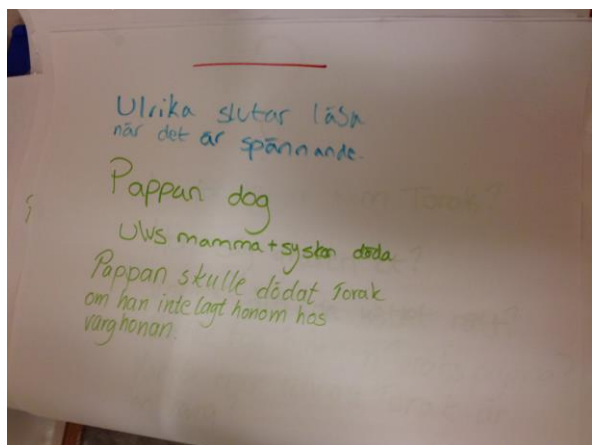 Ulrika slutar läsa
när det är spännande.
Pappan dog
Ulvs mamma + syskon döda
Pappan skulle dödat Torak
om han inte lagt honom hos
varghonan.